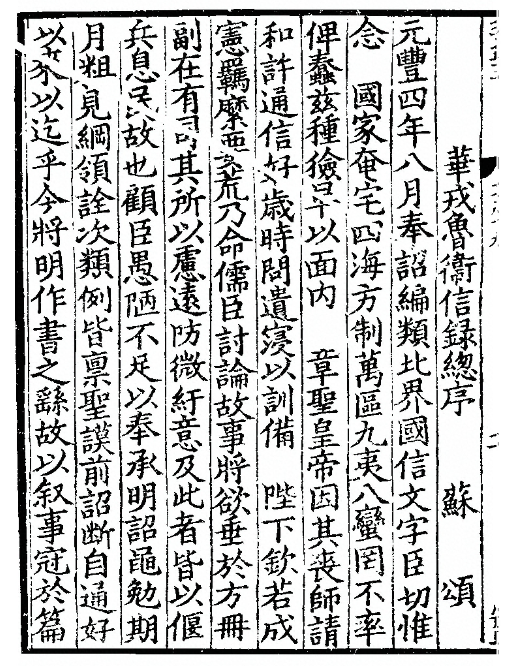 華戎魯衛信録總序　蘇　頌
元豐四年八月奉詔編類北界國信文字臣切惟
念　國家奄宅四海方制萬區九夷八蠻罔不率
俾蠢兹種獫早以面内　章聖皇帝因其喪師請
和許通信好歲時問遺寖以訓備　陛下欽若成
憲羈縻要荒乃命儒臣討論故事將欲垂於方冊
副在有司其所以慮遠防微紓意及此者皆以偃
兵息民故也顧臣愚陋不足以奉承明詔黽勉期
月粗見綱領詮次類例皆禀聖謨前詔斷自通好
以来以迄乎今將明作書之繇故以叙事冠於篇